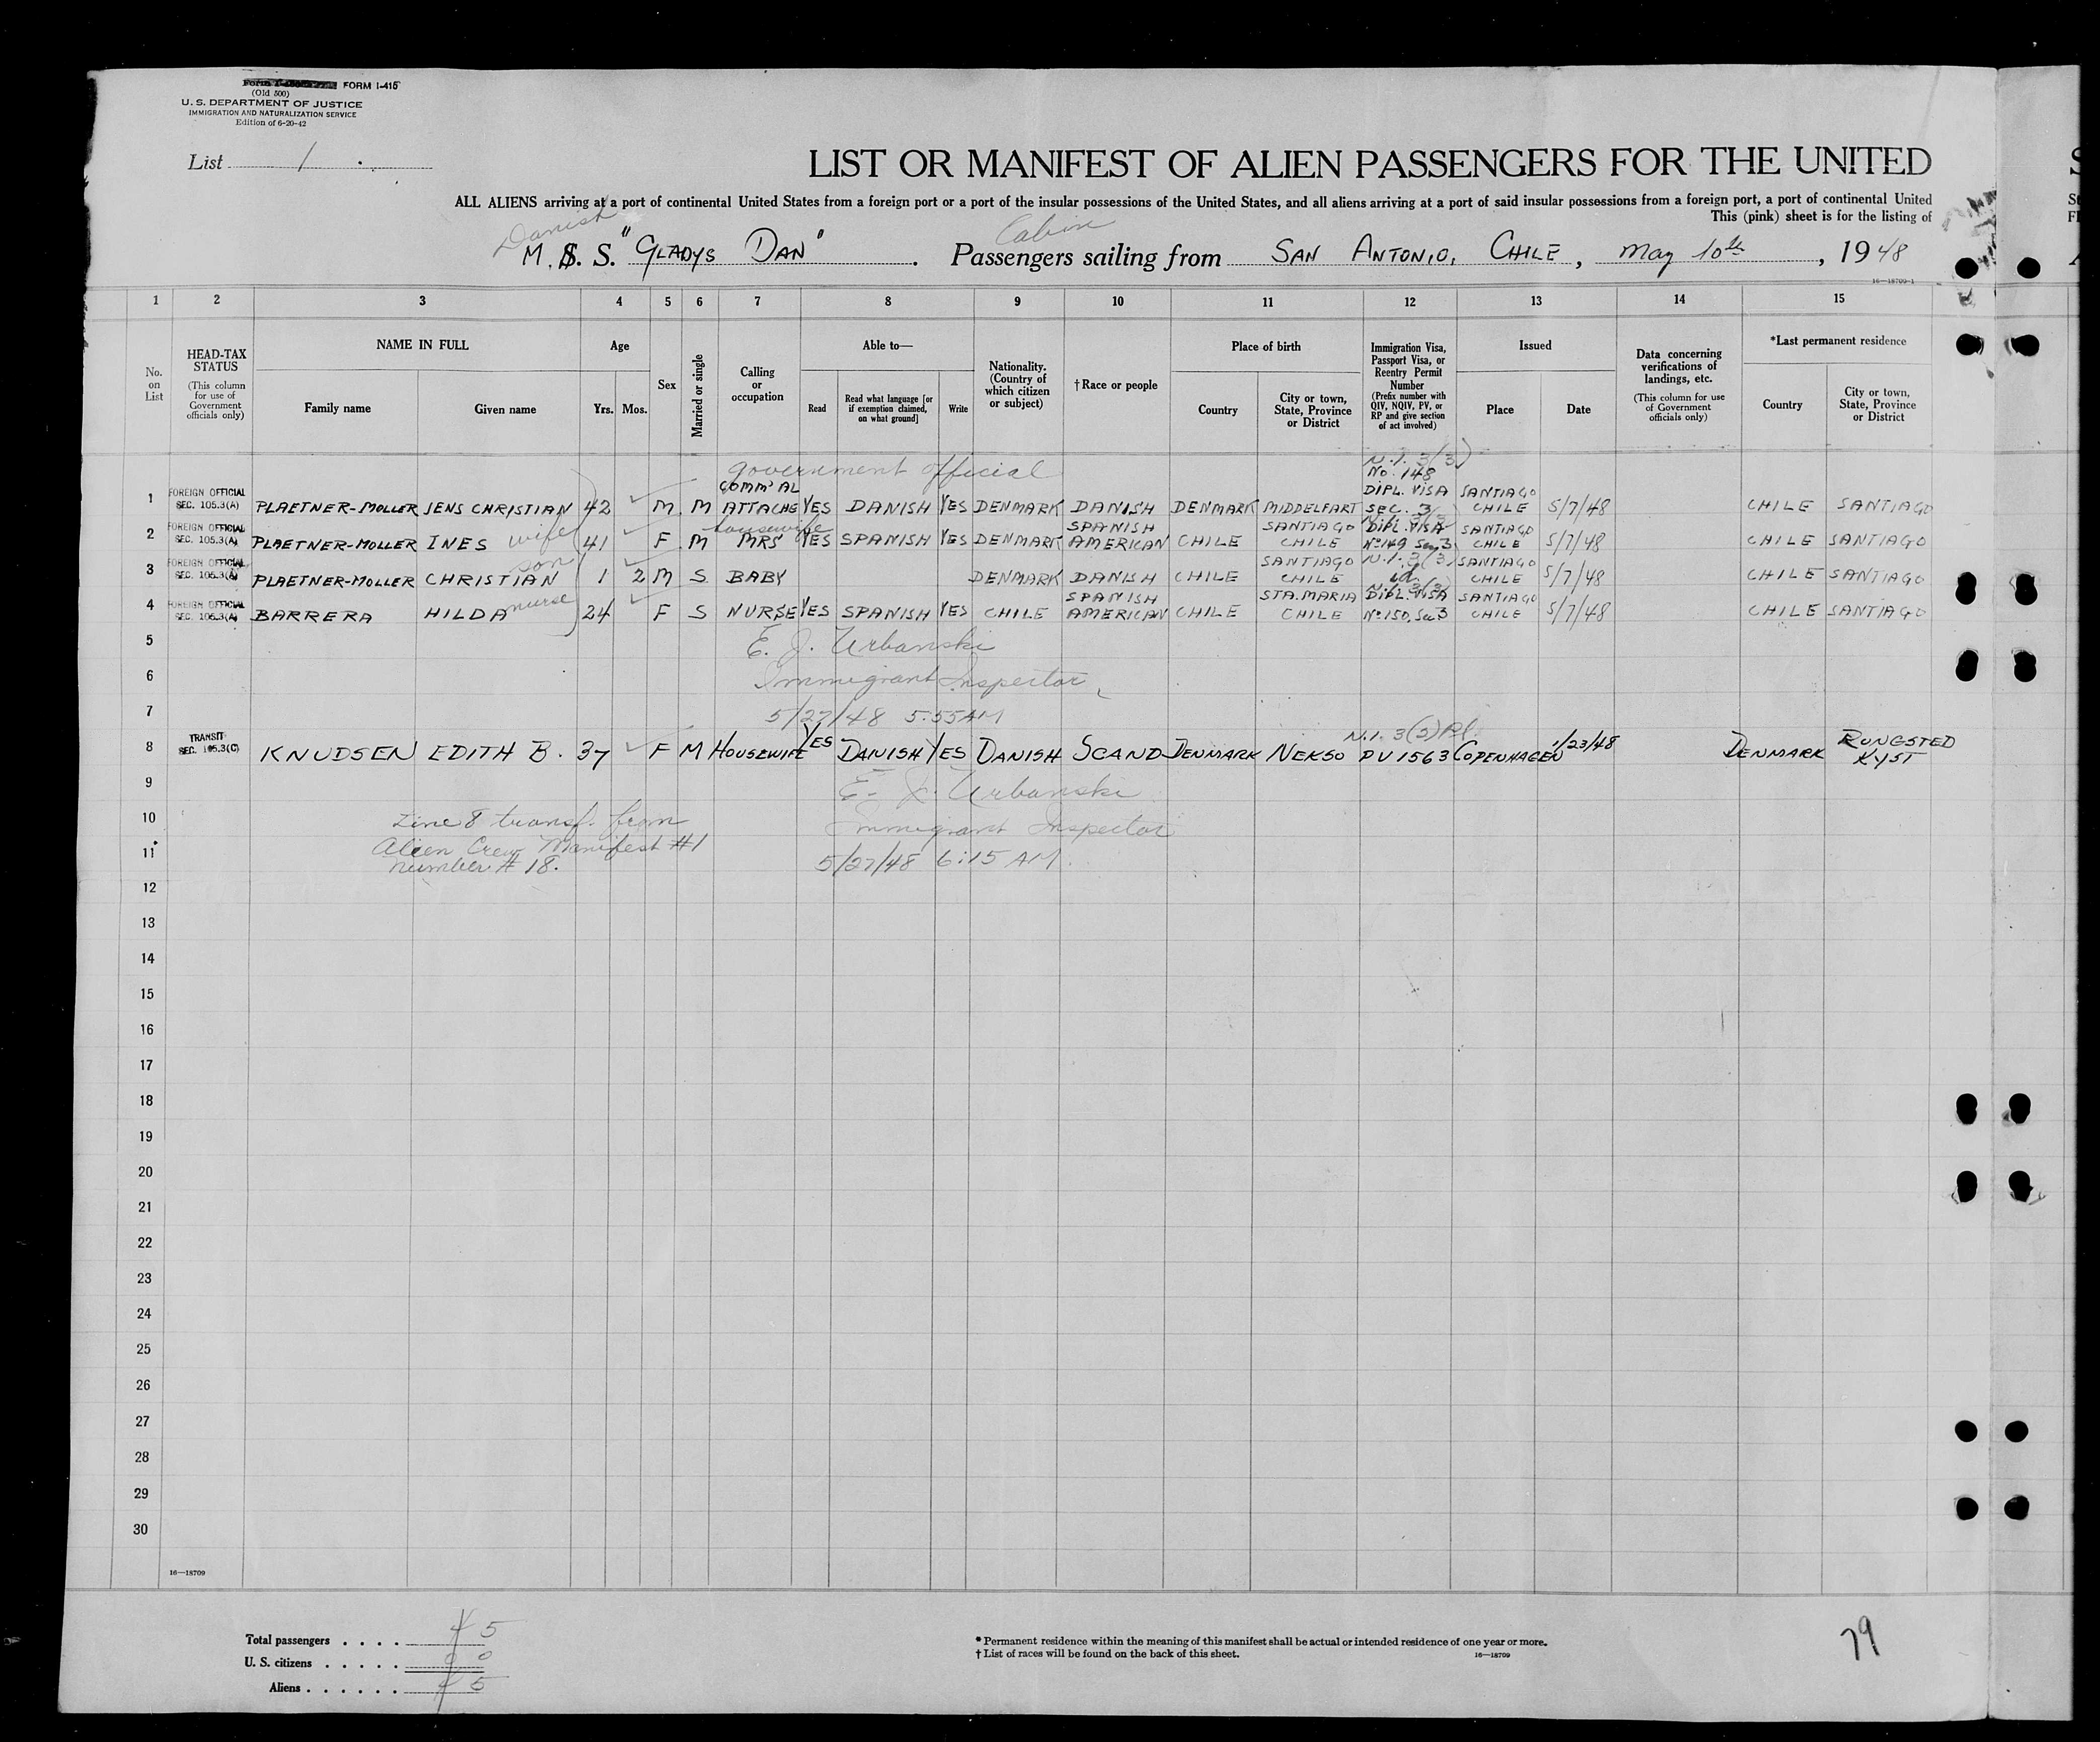 FORM I-415
(Old 500)
U. S. DEPARTMENT OF JUSTICE
IMMIGRATION AND NATURALIZATION SERVICE
Edition of 6-20-42
List 1
LIST OR MANIFEST OF ALIEN PASSENGERS FOR THE UNITED
ALL ALIENS arriving at a port of continental United States from a foreign port or a port of the insular possessions of the United States, and all aliens arriving at a port of said insular possessions from a foreign port, a port of continental United
This (pink) sheet is for the listing of
Danish Cabin
M. S. S. "GLADYS DAN". Passengers sailing from SAN ANTONIO, CHILE, May 10th, 1948
16—18709-1
1 2 3 4 5 6 7 8 9 10 11 12 13 14 15
No. on List
HEAD-TAX STATUS (This column for use of Government officials only)
NAME IN FULL Family name Given name
Age Yrs. Mos.
Sex
Married or single
Calling or occupation
Able to— Read Read what language [or if exemption claimed, on what ground] Write
Nationality. (Country of which citizen or subject)
†Race or people
Place of birth Country City or town, State, Province or District
Immigration Visa, Passport Visa, or Reentry Permit Number (Prefix number with QIV, NQIV, PV, or RP and give section of act involved)
Issued Place Date
Data concerning verifications of landings, etc. (This column for use of Government officials only)
*Last permanent residence Country City or town, State, Province or District
government official N.I. 3(3)
1 FOREIGN OFFICIAL SEC. 105.3(A) PLAETNER-MOLLER JENS CHRISTIAN 42 M M COMM'AL ATTACHE YES DANISH YES DENMARK DANISH DENMARK MIDDELFART No. 148 DIPL. VISA SEC. 3 SANTIAGO CHILE 5/7/48 CHILE SANTIAGO
2 FOREIGN OFFICIAL SEC. 105.3(A) PLAETNER-MOLLER INES wife 41 F M housewife MRS YES SPANISH YES DENMARK SPANISH AMERICAN CHILE SANTIAGO CHILE DIPL. VISA No 149 Sec 3 SANTIAGO CHILE 5/7/48 CHILE SANTIAGO
3 FOREIGN OFFICIAL SEC. 105.3(A) PLAETNER-MOLLER CHRISTIAN son 1 2 M S BABY DENMARK DANISH CHILE SANTIAGO CHILE N.I. 3(3) id. SANTIAGO CHILE 5/7/48 CHILE SANTIAGO
4 FOREIGN OFFICIAL SEC. 105.3(A) BARRERA HILDA nurse 24 F S NURSE YES SPANISH YES CHILE SPANISH AMERICAN CHILE STA. MARIA CHILE DIPL. VISA No 150, Sec 3 SANTIAGO CHILE 5/7/48 CHILE SANTIAGO
5 E. J. Urbanski
6 Immigrant Inspector
7 5/27/48 5:55 AM
8 TRANSIT SEC. 105.3(C) KNUDSEN EDITH B. 37 F M HOUSEWIFE YES DANISH YES DANISH SCAND DENMARK NEKSO PV 1563 COPENHAGEN 1/23/48 DENMARK RUNGSTED KYST
9 E. J. Urbanski
10 Line 8 transf. from Immigrant Inspector
11 Alien Crew Manifest #1 5/27/48 6:15 AM
number # 18.
12
13
14
15
16
17
18
19
20
21
22
23
24
25
26
27
28
29
30
16—18709
Total passengers . . . . 4 5
U. S. citizens . . . . . 0 0
Aliens . . . . . . 4 5
* Permanent residence within the meaning of this manifest shall be actual or intended residence of one year or more.
† List of races will be found on the back of this sheet.
16—18709
79